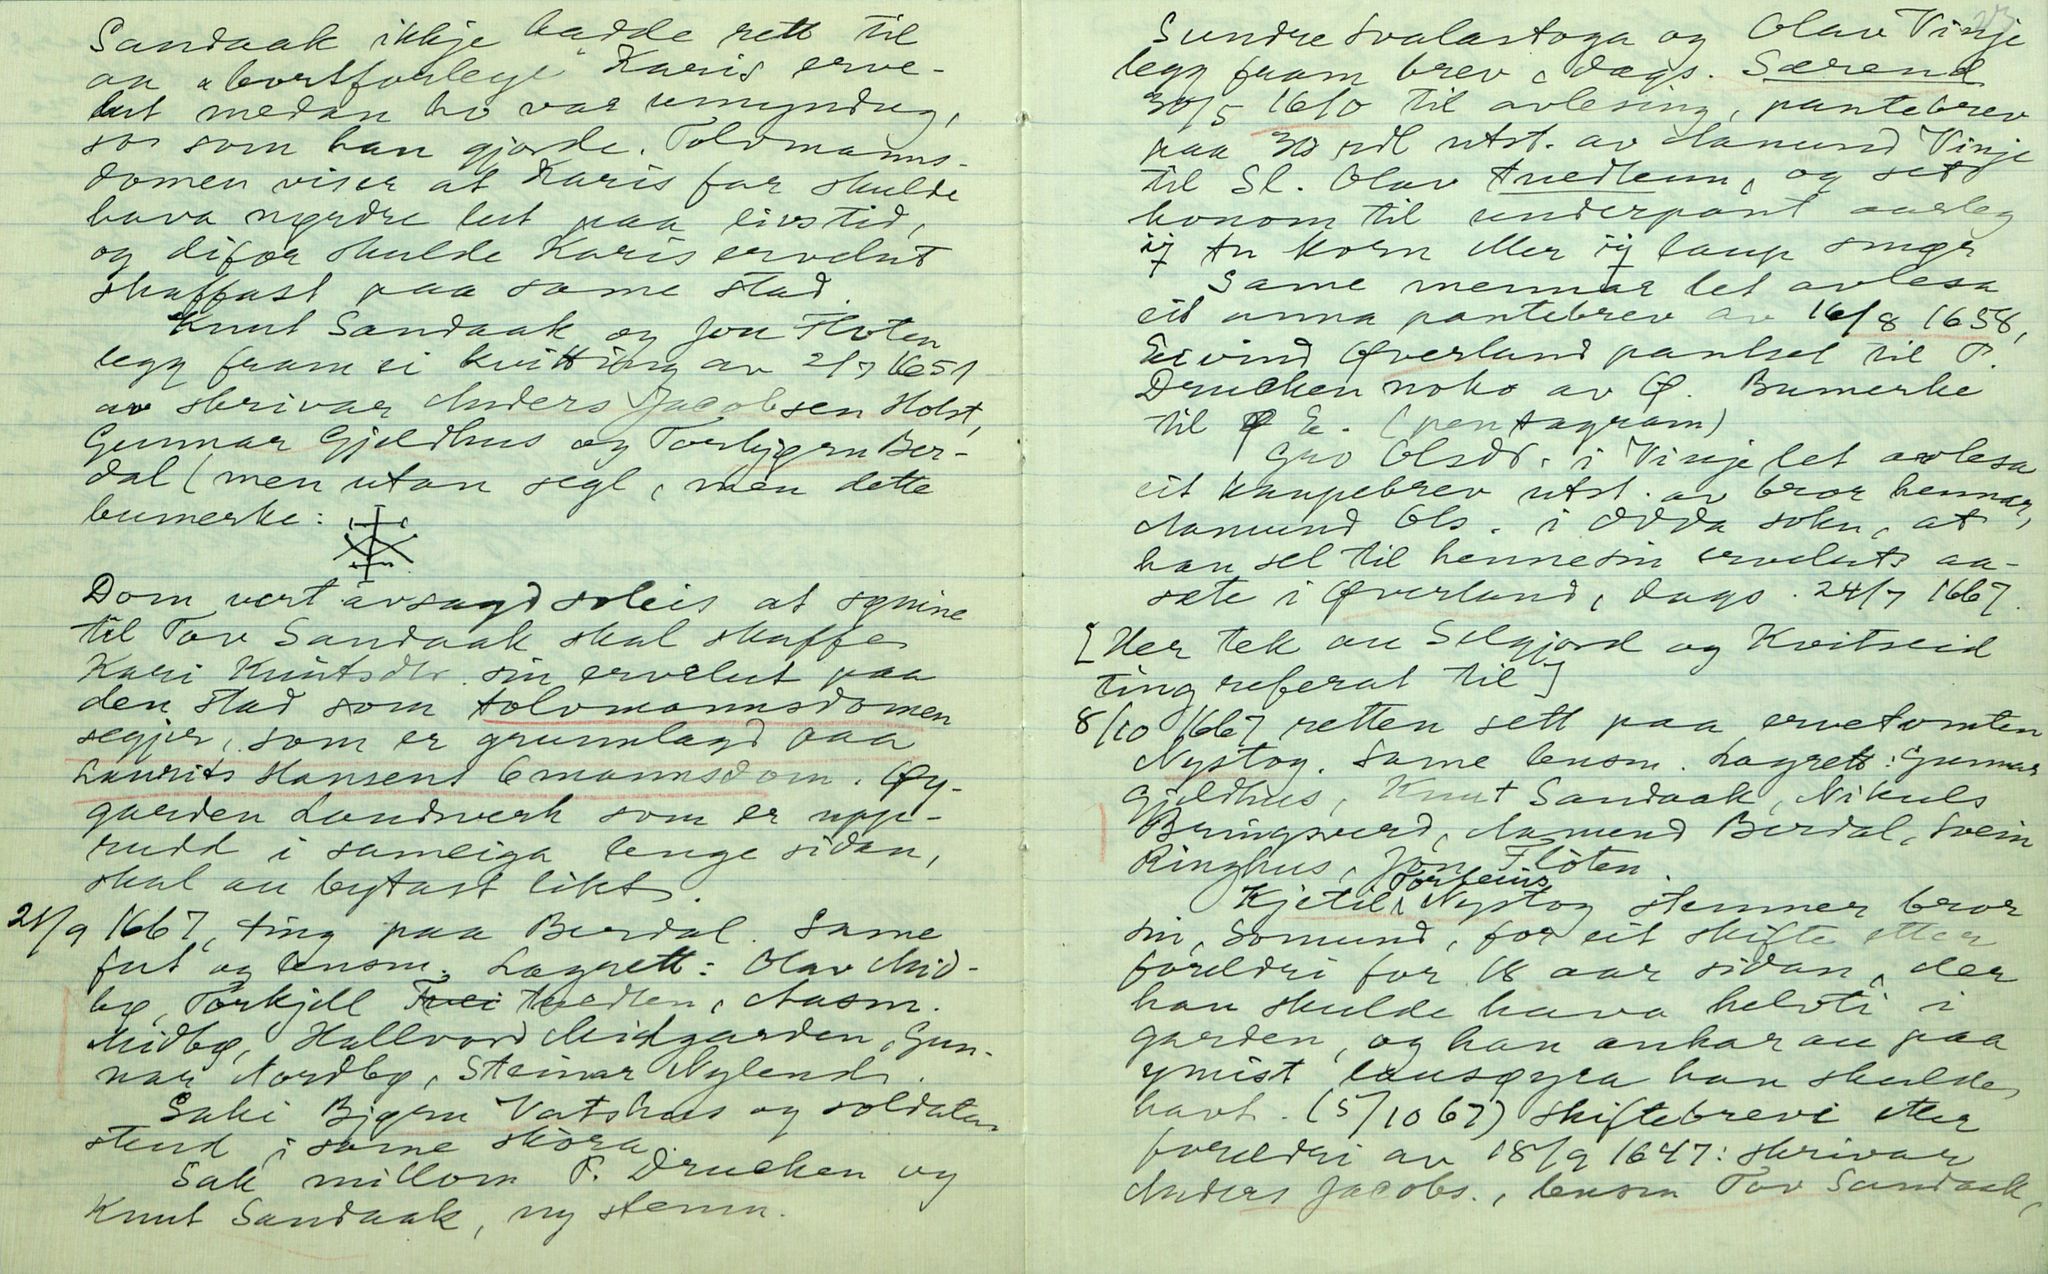 Sandaak ikkje hadde rett til
aa "bortforlege" Karis erve-
lut medan ho var umyndug,
so som han gjorde. Tolvmanns-
domen viser at Karis far skulde
hava nørdre lut paa livstid,
og difor skulde Karis ervelut
skaffast paa same stad.
Knut Sandaak og Jon Fløten
legg fram ei kvitting av 2/7 1651
av skrivar Anders Jacobsen Holst,
Gunnar Gjeldhus og Torbjørn Ber-
dal (men utan segl, men dette
bumerke:
Dom vert avsagd soleis at sønine
til Tov Sandaak skal skaffe
Kari Knutsdtr. sin ervelut paa
den stad som tolvmannsdomen
segjer, som er grunnlagd paa
Laurits Hansens 6mannsdom. Øy-
garden Landsverk som er upp-
rudd i sameiga lenge sidan,
skal au bytast likt.
21/9 1667, ting paa Berdal. Same
fut og lensm. Lagrett: Olav Mid-
bø, Torkjell Tvedten, Aasm.
Midbø, Hallvord Midgarden, Gun-
nar Nordbø, Steinar Nylend.
Saki Bjørn Vatshus og soldaten
stend i same skora.
Sak millom P. Drucken og
Knut Sandaak, ny stemn.
23
Sundre Svalastoga og Olav Vinje
legg fram brev, dags. Særend
30/5 1610 til avlesing, pantebrev
paa 30 rdl utst. av Aamund Vinje
til Sl. Olav Tvedten, og set
honom til underpant aarleg
ij tn korn eller ij laup smør
Same mennar let avlesa
eit anna pantebrev av 16/8 1658,
Eivind Øverland pantset til P.
Drucken noko av Ø. Bumerke
til E. (pentagram)
Gro Olsdr. i Vinje let avlesa
eit kaupebrev utst. av bror hennar,
Aamund Ols. i Odda sokn, at
han sel til henne sin ervelut aa-
sæte i Øverland, dags. 24/7 1667.
[Her tek au Selgjord og Kvitseid
tingreferat til]
8/10 1667 retten sett paa ervetomten
Nystog. Same lensm. Lagrett: Gunnar
Gjeldhus, Knut Sandaak, Nikuls
Bringsverd, Aamund Berdal, Svein
Ringhus, Jon Fløten.
Kjetil Torbeins Nystog stemner bror
sin, Somund, for eit skifte etter
foreldri for 18 aar sidan, der
han skulde hava helvti i
garden, og han ankar au paa
ymist lausøyra han skulde
havt. (5/10 67) Skiftebrevi etter
foreldri av 18/9 1647: skrivar
Anders Jacobs., lensm Tov Sandaak,